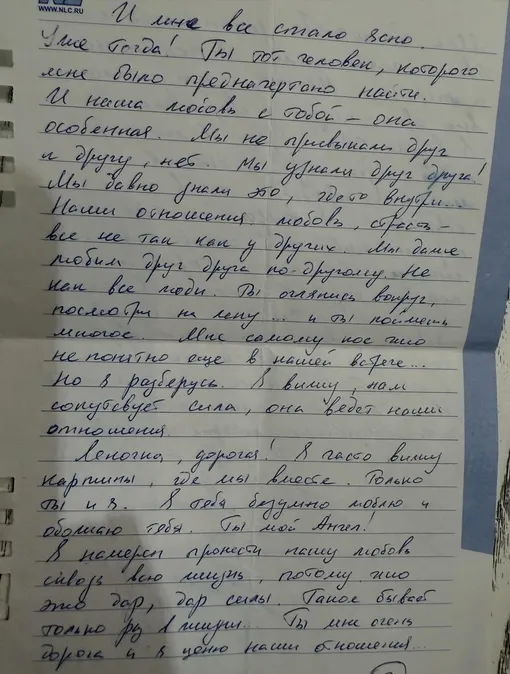 WWW.NLC.RU
И мне все стало ясно.
Уже тогда! Ты тот человек, которого
мне было предначертано найти.
И наша любовь с тобой – она
особенная. Мы не привыкали друг
к другу, нет. Мы узнали друг друга!
Мы давно знали это, где то внутри...
Наши отношения, любовь, страсть –
все не так как у других. Мы даже
любим друг друга по-другому. Не
как все люди. Ты оглянись вокруг,
посмотри на ... и ты поймешь
многое. Мне самому кое что
не понятно еще в нашей встрече...
Но я разберусь. Я вижу, нам
сопутсвует сила, она ведет наши
отношения.
Леночка, дорогая! Я часто вижу
картины, где мы вместе. Только
ты и я. Я тебя безумно люблю и
обожаю тебя. Ты мой Ангел!
Я намерен пронести нашу любовь
сквозь всю жизнь, потому что
это дар, дар силы. Такое бывает
только раз в жизни... Ты мне очень
дорога и я ценю наши отношения...